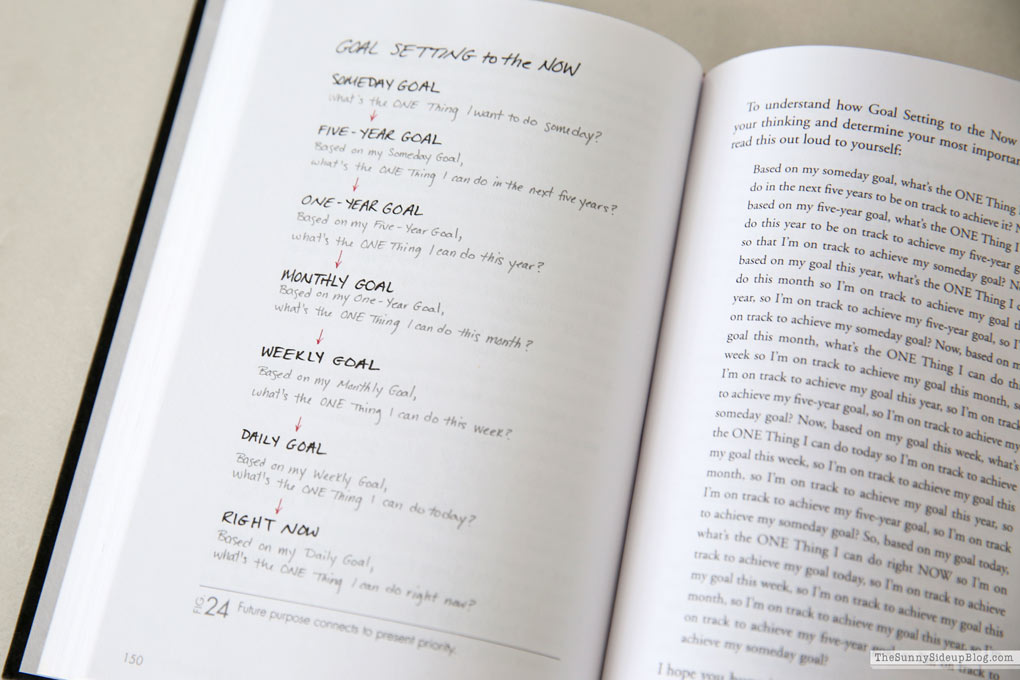 GOAL SETTING to the NOW
SOMEDAY GOAL
What's the ONE Thing I want to do someday?
FIVE-YEAR GOAL
Based on my Someday Goal,
what's the ONE Thing I can do in the next five years?
ONE-YEAR GOAL
Based on my Five-Year Goal,
what's the ONE Thing I can do this year?
MONTHLY GOAL
Based on my One-Year Goal,
what's the ONE Thing I can do this month?
WEEKLY GOAL
Based on my Monthly Goal,
what's the ONE Thing I can do this week?
DAILY GOAL
Based on my Weekly Goal,
what's the ONE Thing I can do today?
RIGHT NOW
Based on my Daily Goal,
what's the ONE Thing I can do right now?
FIG. 24 Future purpose connects to present priority.
150
To understand how Goal Setting to the Now
your thinking and determine your most
read this out loud to yourself:
Based on my someday goal, what's the ONE Thing
do in the next five years to be on track to achieve it?
based on my five-year goal, what's the ONE Thing I
do this year to be on track to achieve my five-year
so that I'm on track to achieve my someday goal?
based on my goal this year, what's the ONE Thing I
do this month so I'm on track to achieve my goal
year, so I'm on track to achieve my five-year goal, so
on track to achieve my someday goal? Now, based on
goal this month, what's the ONE Thing I can do
week so I'm on track to achieve my goal this month,
I'm on track to achieve my goal this year, so I'm on
to achieve my five-year goal, so I'm on track to achieve my
someday goal? Now, based on my goal this week, what's
the ONE Thing I can do today so I'm on track to achieve
my goal this week, so I'm on track to achieve my goal this
month, so I'm on track to achieve my goal this year, so
I'm on track to achieve my five-year goal, so I'm on track
to achieve my someday goal? So, based on my goal today,
what's the ONE Thing I can do right NOW so I'm on
track to achieve my goal today, so I'm on track to achieve
my goal this week, so I'm on track to achieve my goal this
month, so I'm on track to achieve my goal this year, so I'm
on track to achieve my five-year goal, so I'm on track to
achieve my someday goal?
I hope you
TheSunnySideupBlog.com